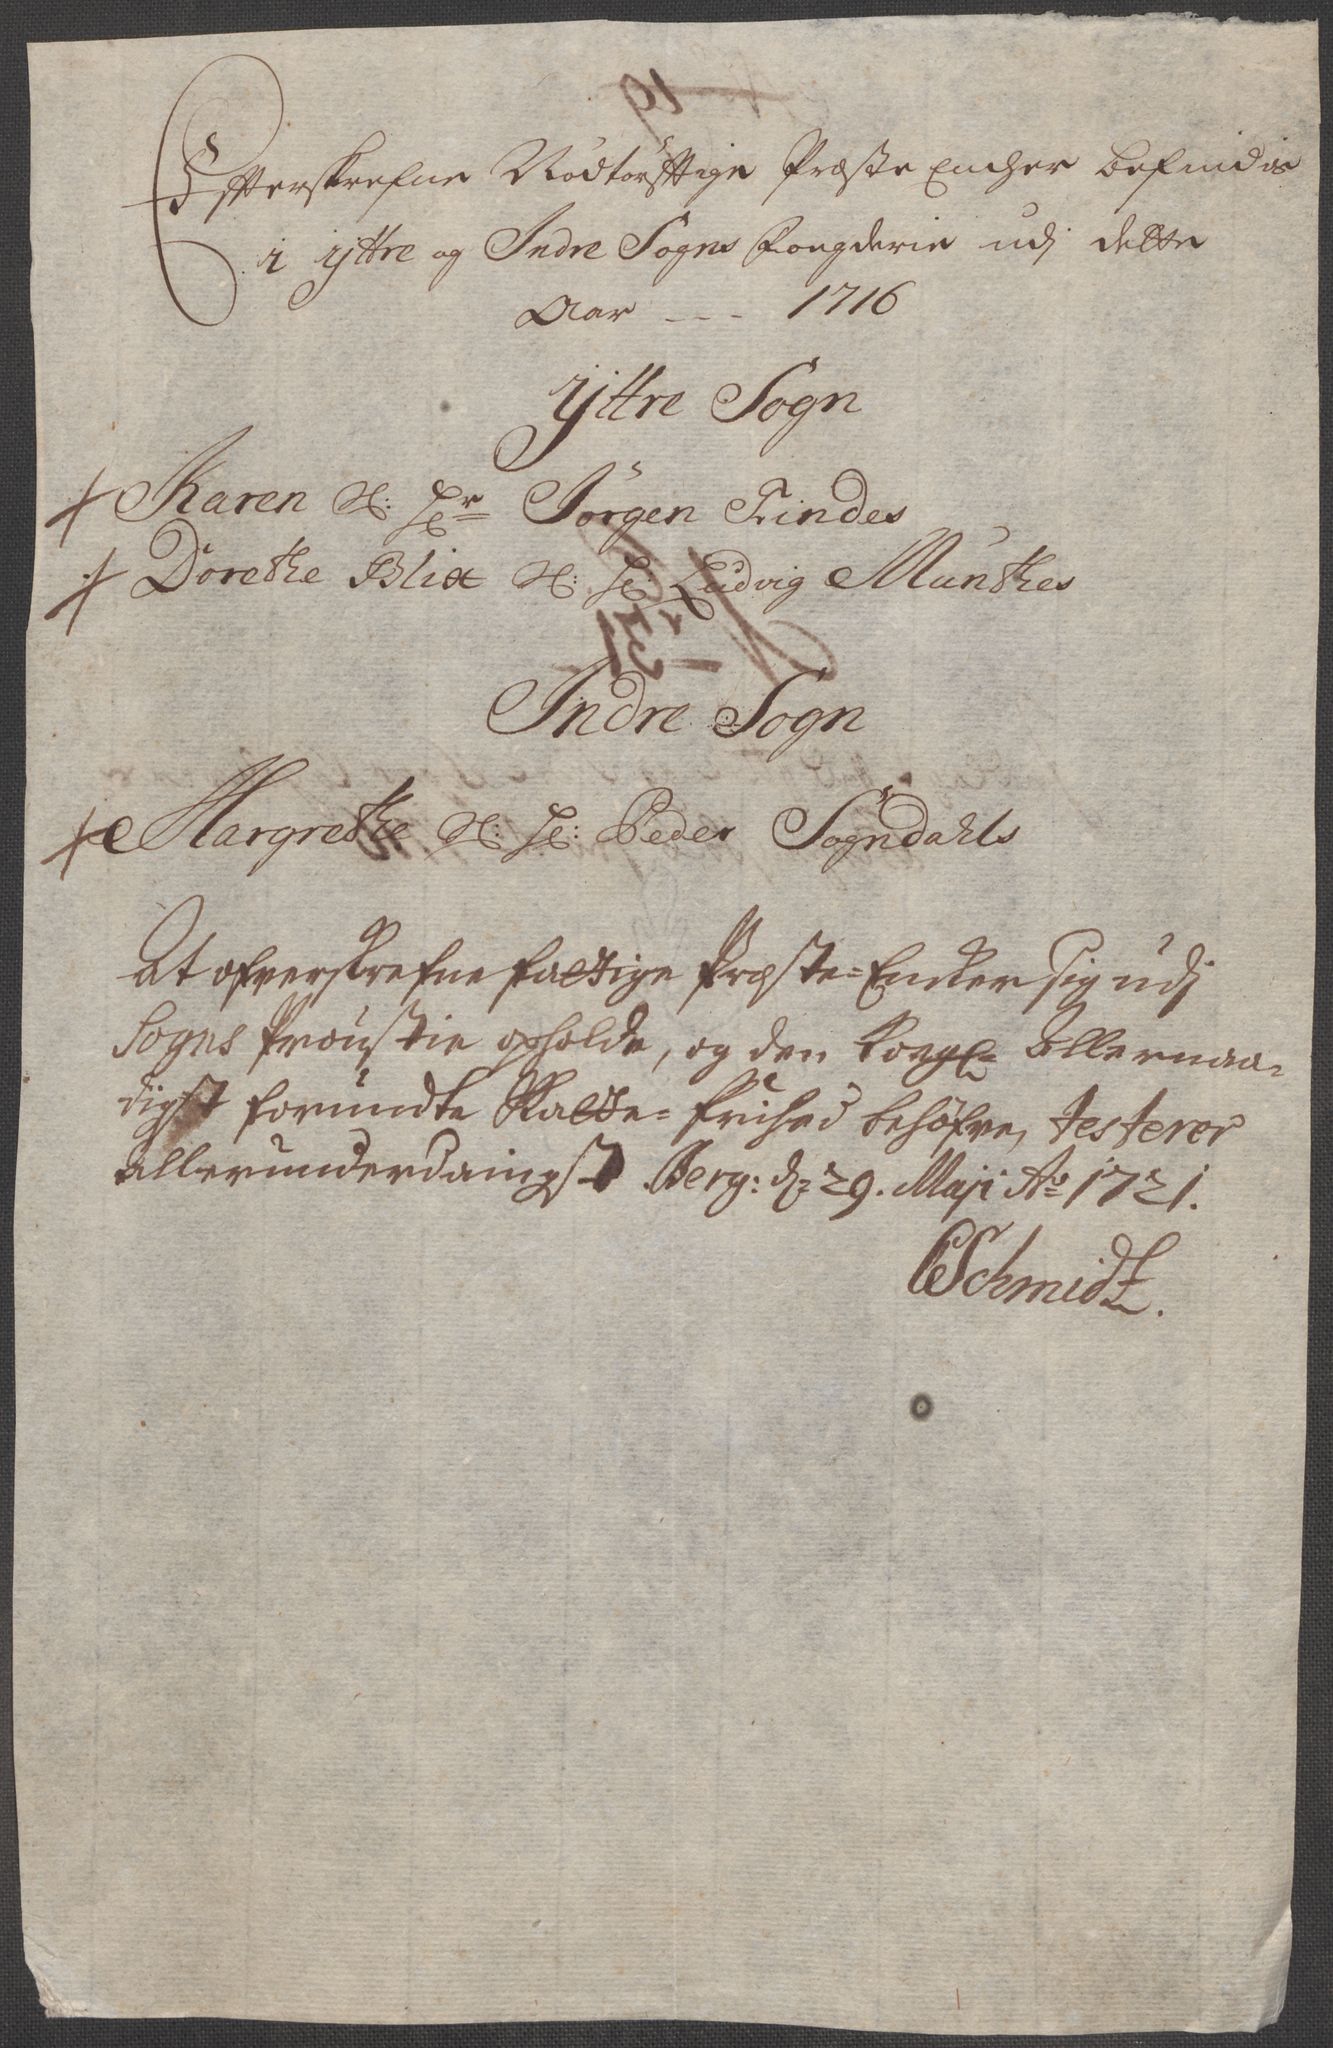 Efterskrefne Nödtörfftige Præste Encher befindis
i ÿttre og Indre Sogns Fougderie udj dette
Aar --- 1716
ÿttre Sogn
Karen Sl: Hr Jörgen Findes
Dorethe Blix Sl: H: Ludvig Munthes
Indre Sogn
Margrethe Sl: H: Peder Sogndahls
At ofverskrefne fattige Præste-Encker sig udj
Sogns Proustie opholde, og den Kongl: Allernaa-
digst forundte Skatte-frihed behöfve, testerer
allerunderdanigst Berg: d: 29. Maji Ao 1721.
CSchmidt.